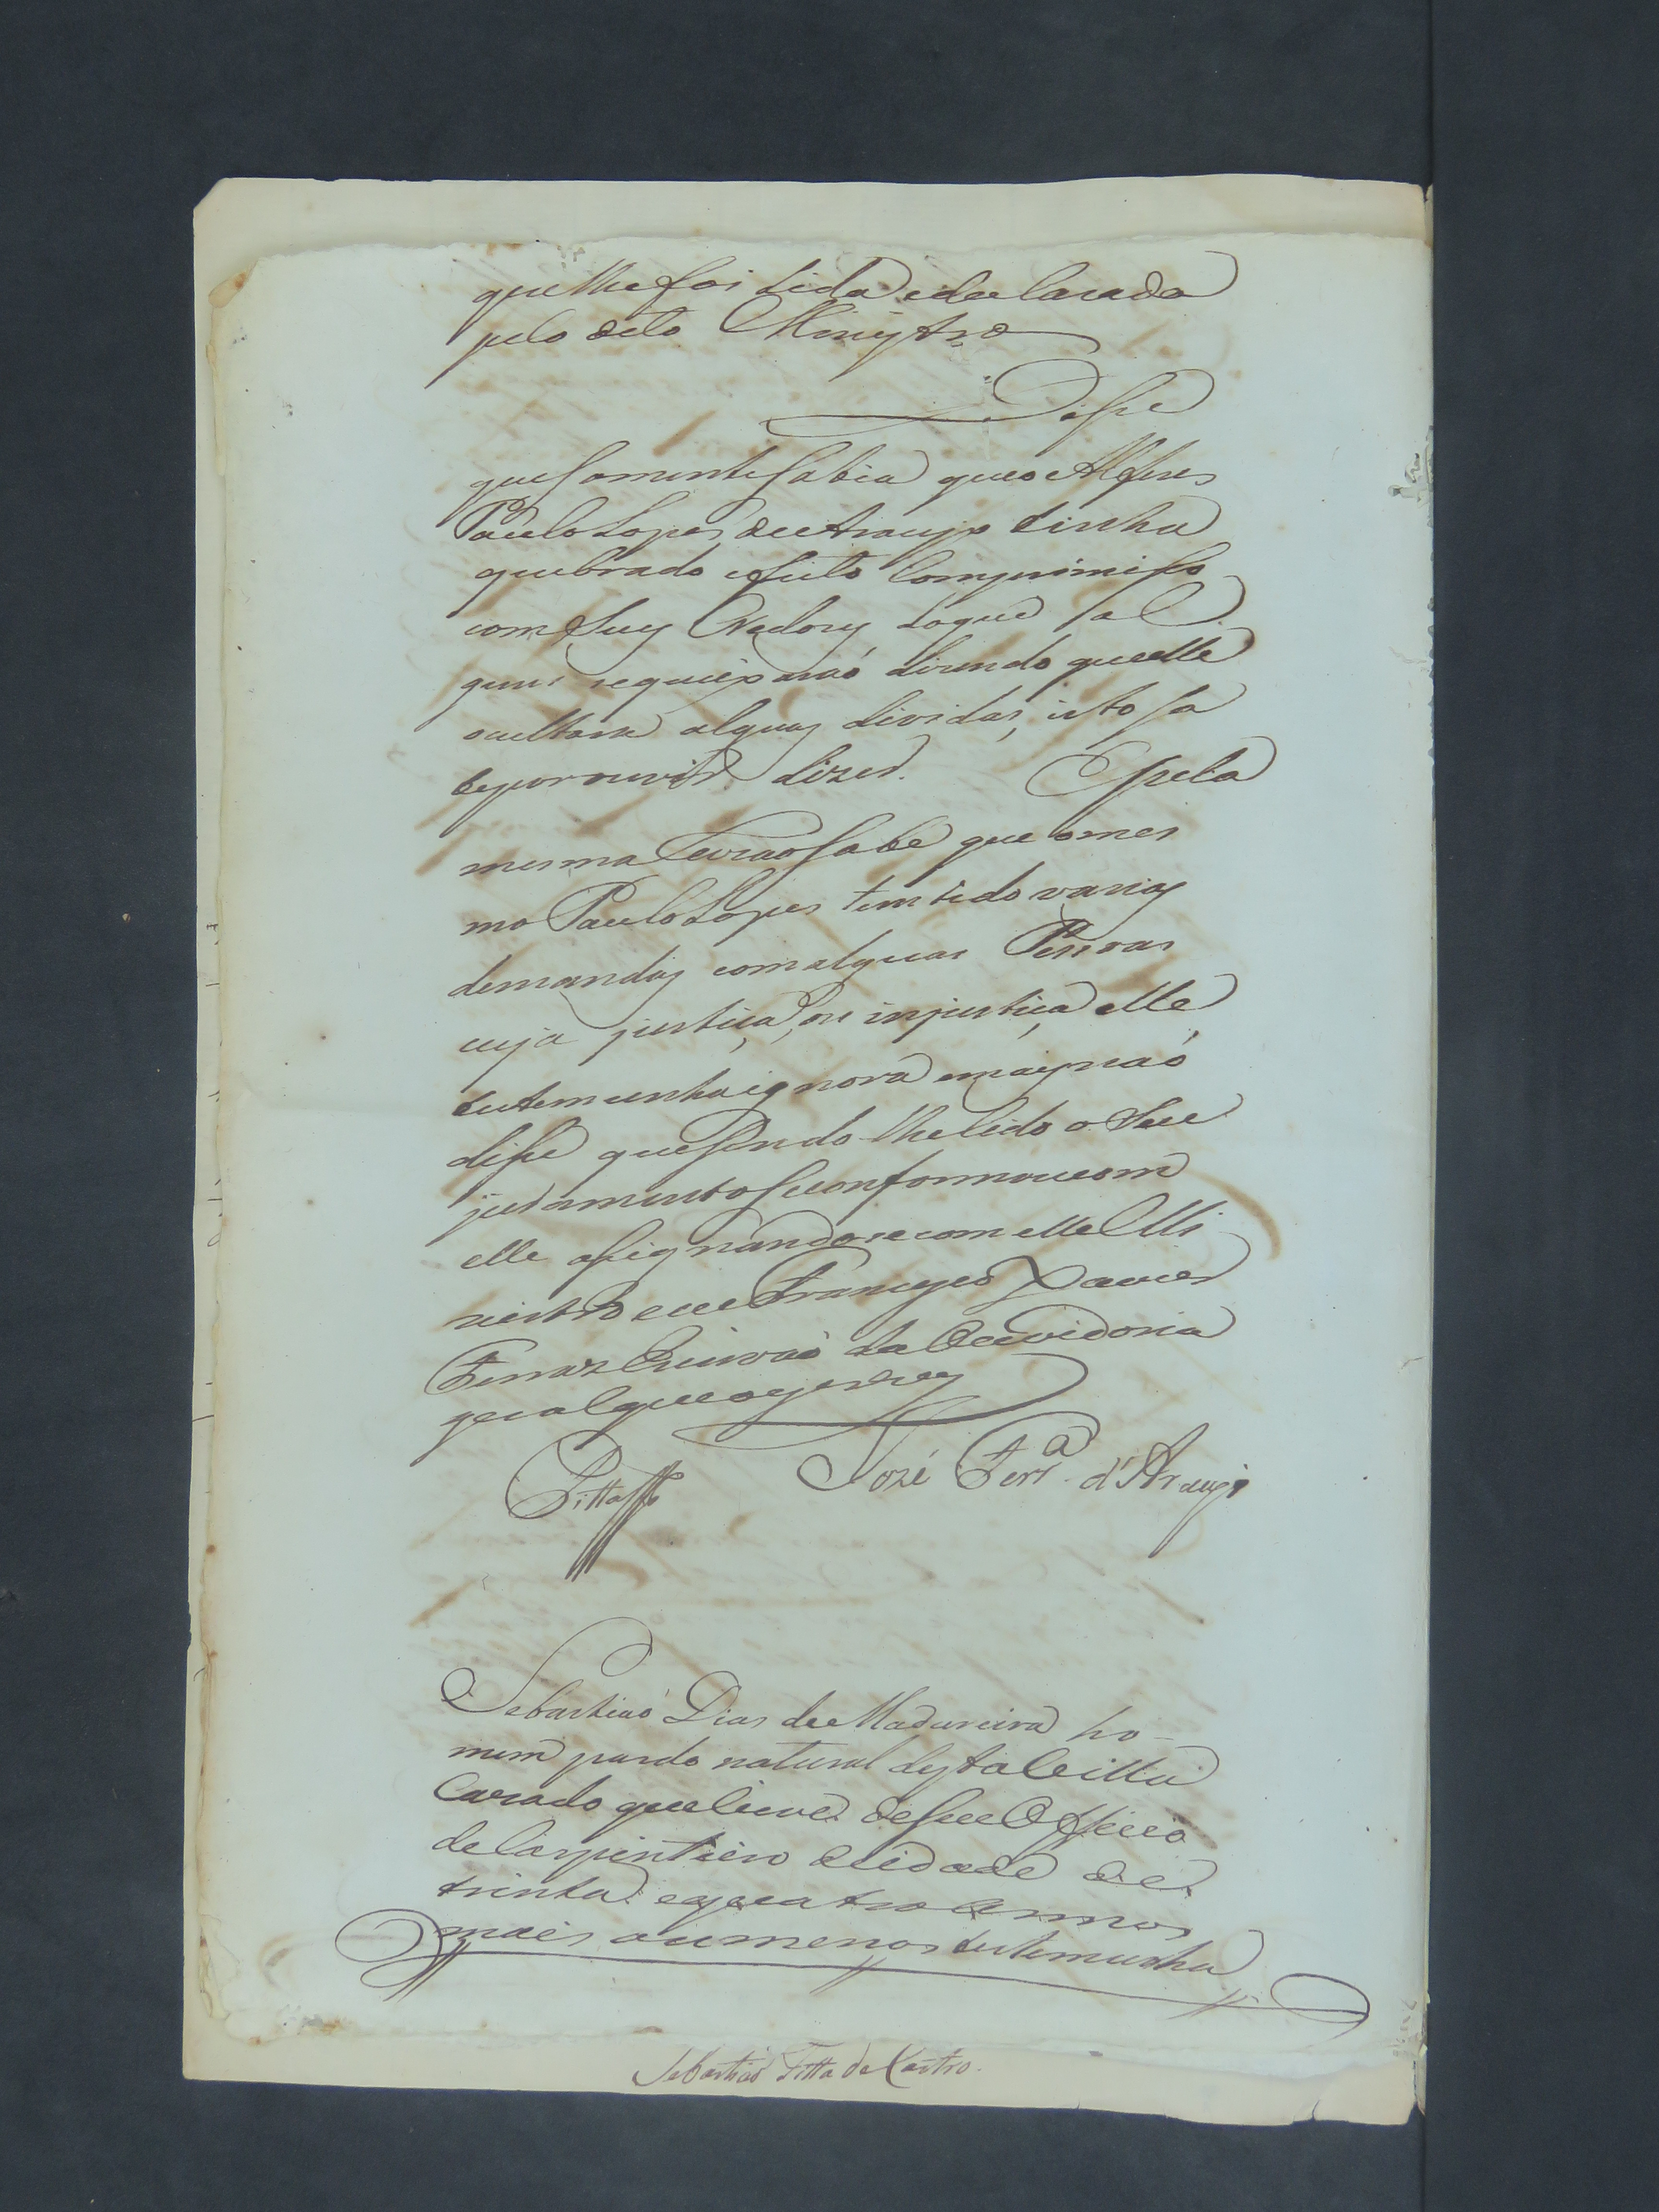 que lhe foi lida e declarada
pelo dito Minystro
Disse
que somente sabia que o Alferes
Paulo Lopes de Araujo tinha
quebrado e feito Comprimisso
com seuy Credorey do que al
guns dizendo que elle
ocultara alguas dividas, isto sa
be por ouvir dizer. E pela
mesma Rezaõ sabe que o mes
mo Paulo Lopes tem tido variay
demanday com alguas Pessoas
cuja justiça, ou injustiça elle
testemunha ignora e maiy naõ
disse que sendo-lhe lido o seu
juramento se conformou com
elle assignandose com elle Mi
nistro e eu Francyco Xavier
Ferraz Escrivaõ da Ouvidoria
geral que o escrevy
Pitta José Ferr.ª d'Araujo
Sebastiaõ Dias de Madureira ho-
mem pardo natural desta Villa
Cazado que vive de seu Officio
de Carpinteiro de idade de
trinta e quatro annos
mais ou menos testemunha
Sebastiaõ Pitta de Castro.